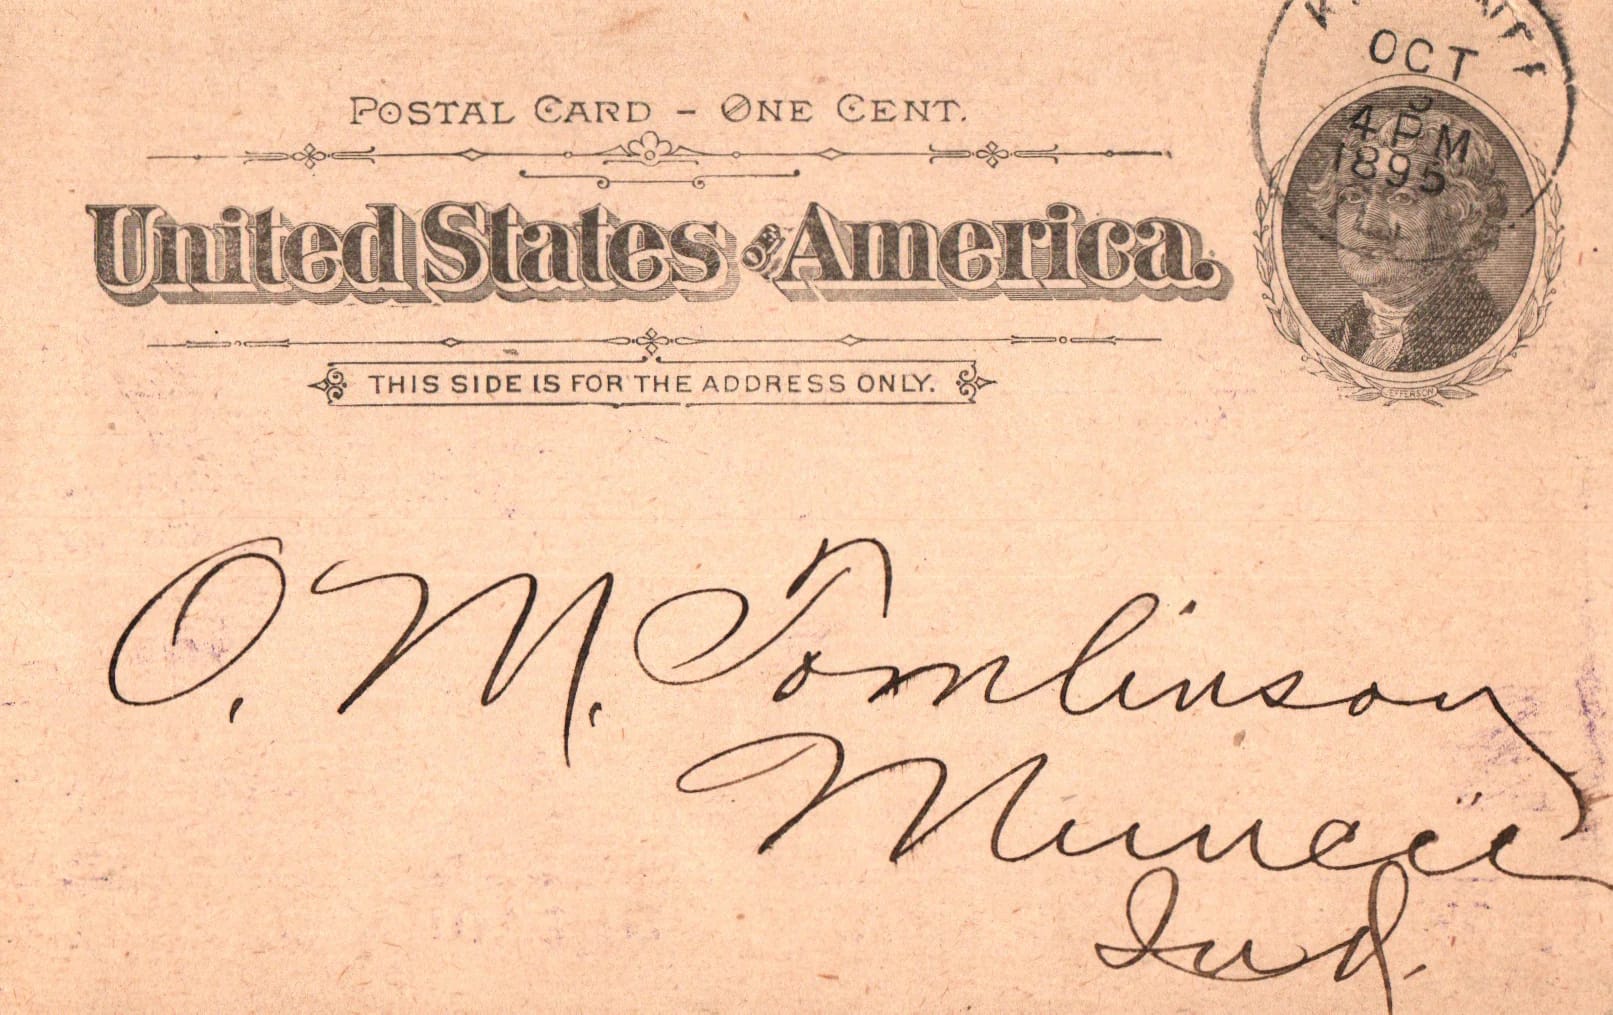 OCT
POSTAL CARD – ONE CENT.
4 PM
1895
United States OF America.
THIS SIDE IS FOR THE ADDRESS ONLY.
JEFFERSON
O. M. Tomlinson
Muncie
Ind.